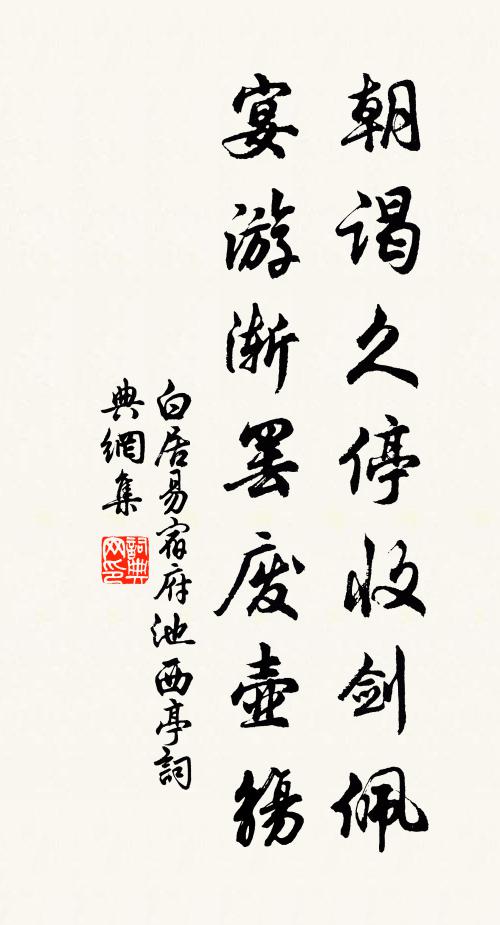 朝谒久停收剑佩
宴游渐罢废壶觞
白居易宿府池西亭詞
典網集
詞典网印